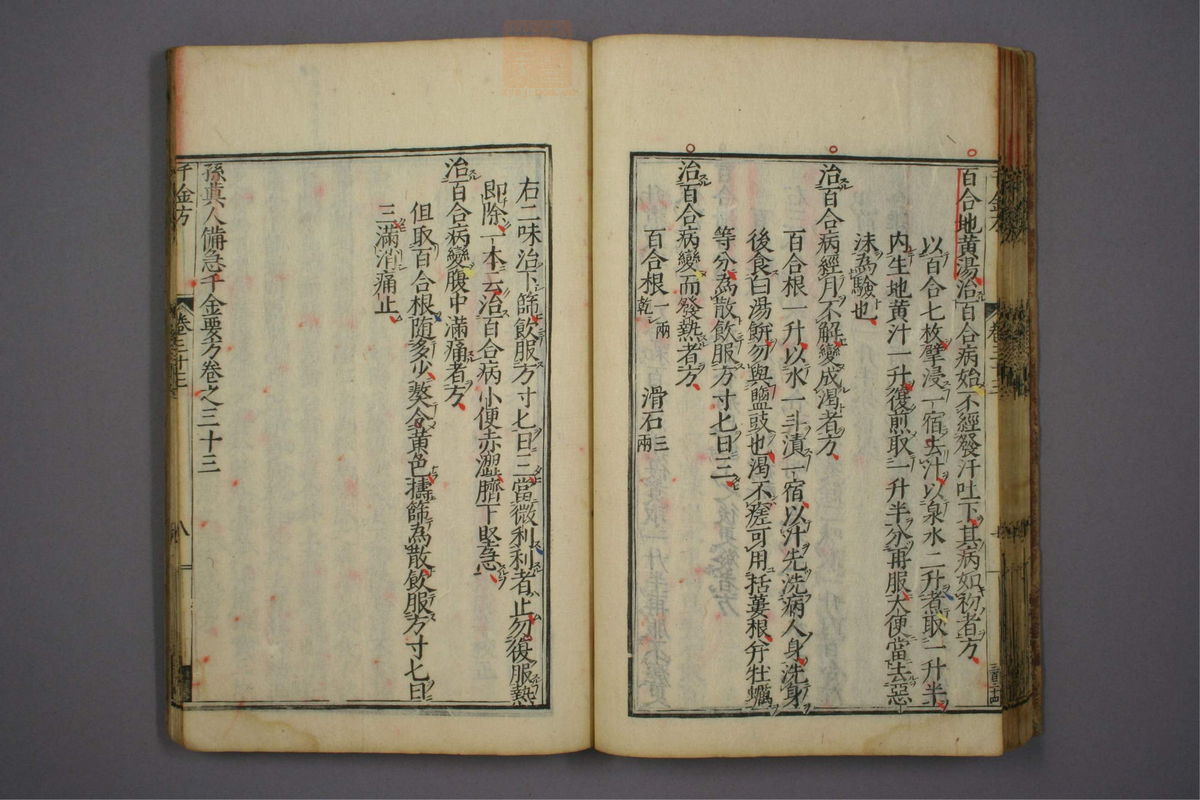 百合地黃湯治百合病始不經發汗吐下其病如初者方
以百合七枚擘浸一宿去汁以泉水二升煮取一升半
內生地黃汁一升復煎取一升半分再服大便當去惡
沫為驗也
治百合病經月不解變成渴者方
百合根一升以水一斗漬一宿以汁先洗病人身洗身
後食白湯餅勿與鹽豉也渴不瘥可用括蔞根并牡蠣
等分為散飲服方寸匕日三
治百合病變而發熱者方
百合根一兩乾 滑石三兩
右二味治下篩飲服方寸匕日三當微利利者止勿復服熱
即除一本云治百合病小便赤澀臍下堅急
治百合病變腹中滿痛者方
但取百合根随多少熬令黃色擣篩為散飲服方寸匕日
三滿消痛止
孫真人備急千金要方卷之三十三
千金方 卷三十三 八